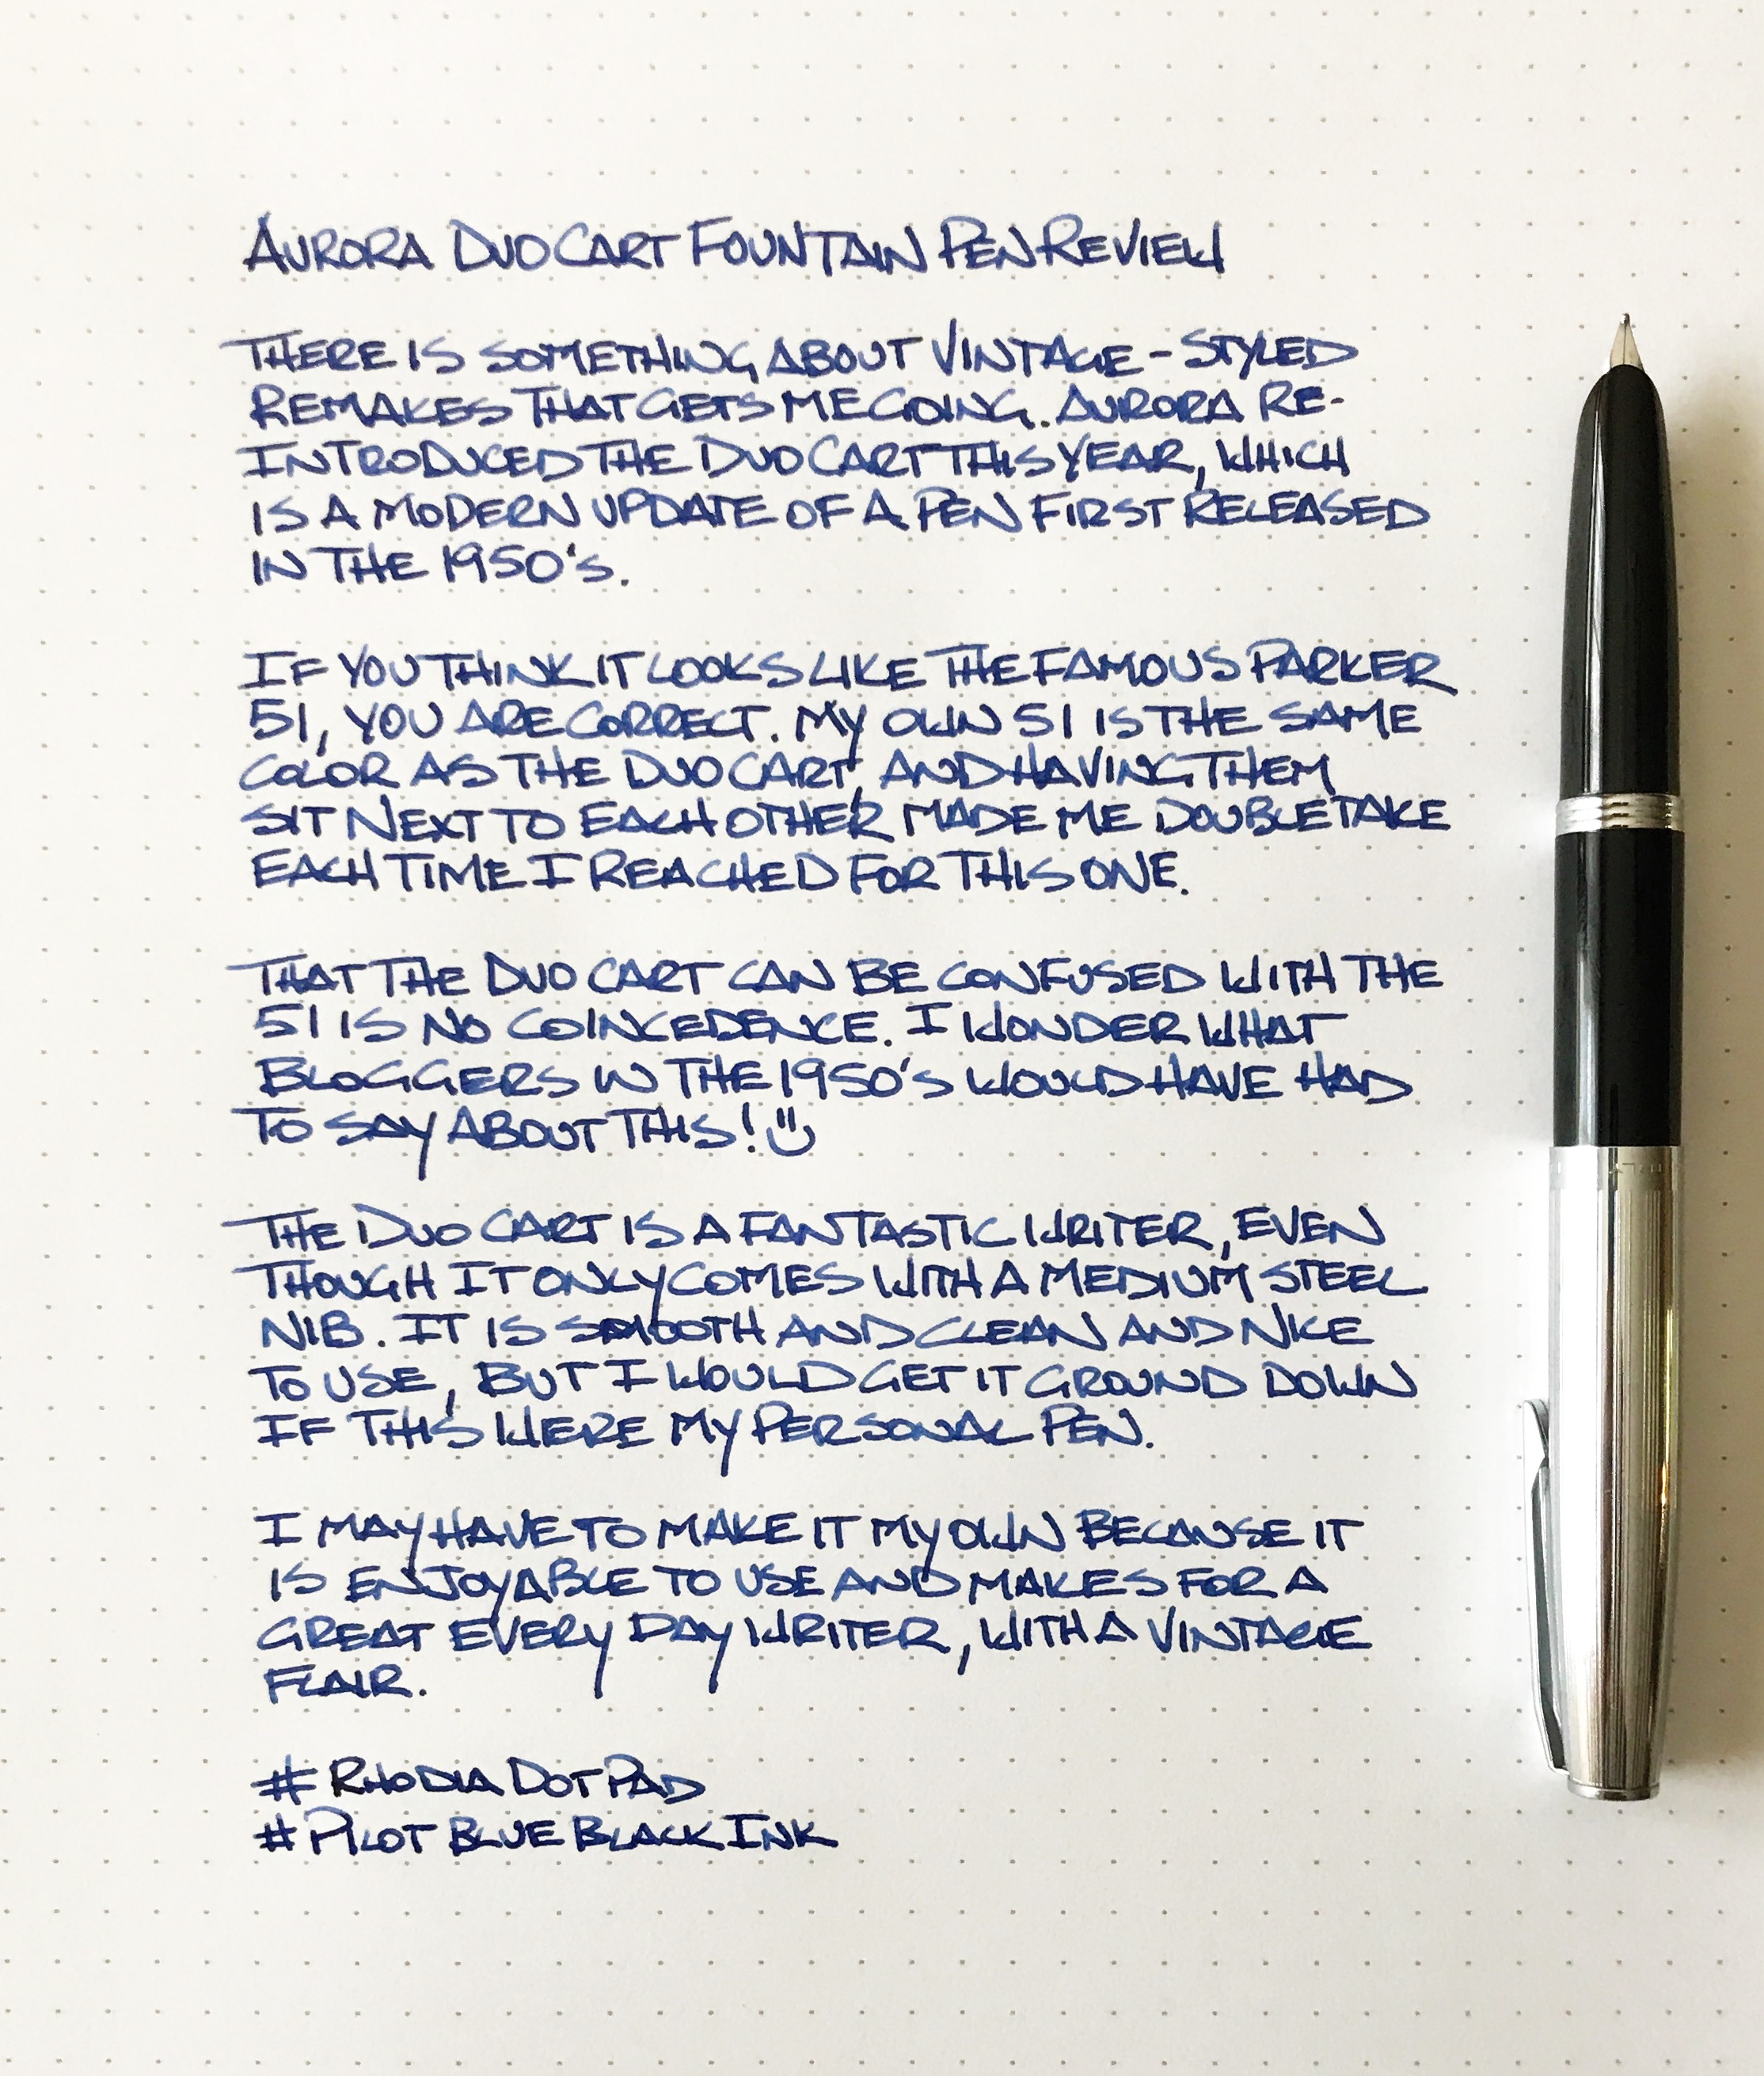 AURORA DUO CART FOUNTAIN PEN REVIEW
THERE IS SOMETHING ABOUT VINTAGE-STYLED
REMAKES THAT GETS ME GOING. AURORA RE-
INTRODUCED THE DUO CART THIS YEAR, WHICH
IS A MODERN UPDATE OF A PEN FIRST RELEASED
IN THE 1950's.
IF YOU THINK IT LOOKS LIKE THE FAMOUS PARKER
51, YOU ARE CORRECT. MY OWN 51 IS THE SAME
COLOR AS THE DUO CART, AND HAVING THEM
SIT NEXT TO EACH OTHER MADE ME DOUBLE TAKE
EACH TIME I REACHED FOR THIS ONE.
THAT THE DUO CART CAN BE CONFUSED WITH THE
51 IS NO COINCEDENCE. I WONDER WHAT
BLOGGERS IN THE 1950's WOULD HAVE HAD
TO SAY ABOUT THIS! ☺
THE DUO CART IS A FANTASTIC WRITER, EVEN
THOUGH IT ONLY COMES WITH A MEDIUM STEEL
NIB. IT IS SMOOTH AND CLEAN AND NICE
TO USE, BUT I WOULD GET IT GROUND DOWN
IF THIS WERE MY PERSONAL PEN.
I MAY HAVE TO MAKE IT MY OWN BECAUSE IT
IS ENJOYABLE TO USE AND MAKES FOR A
GREAT EVERY DAY WRITER, WITH A VINTAGE
FLAIR.
# RHODIA DOT PAD
# PILOT BLUE BLACK INK